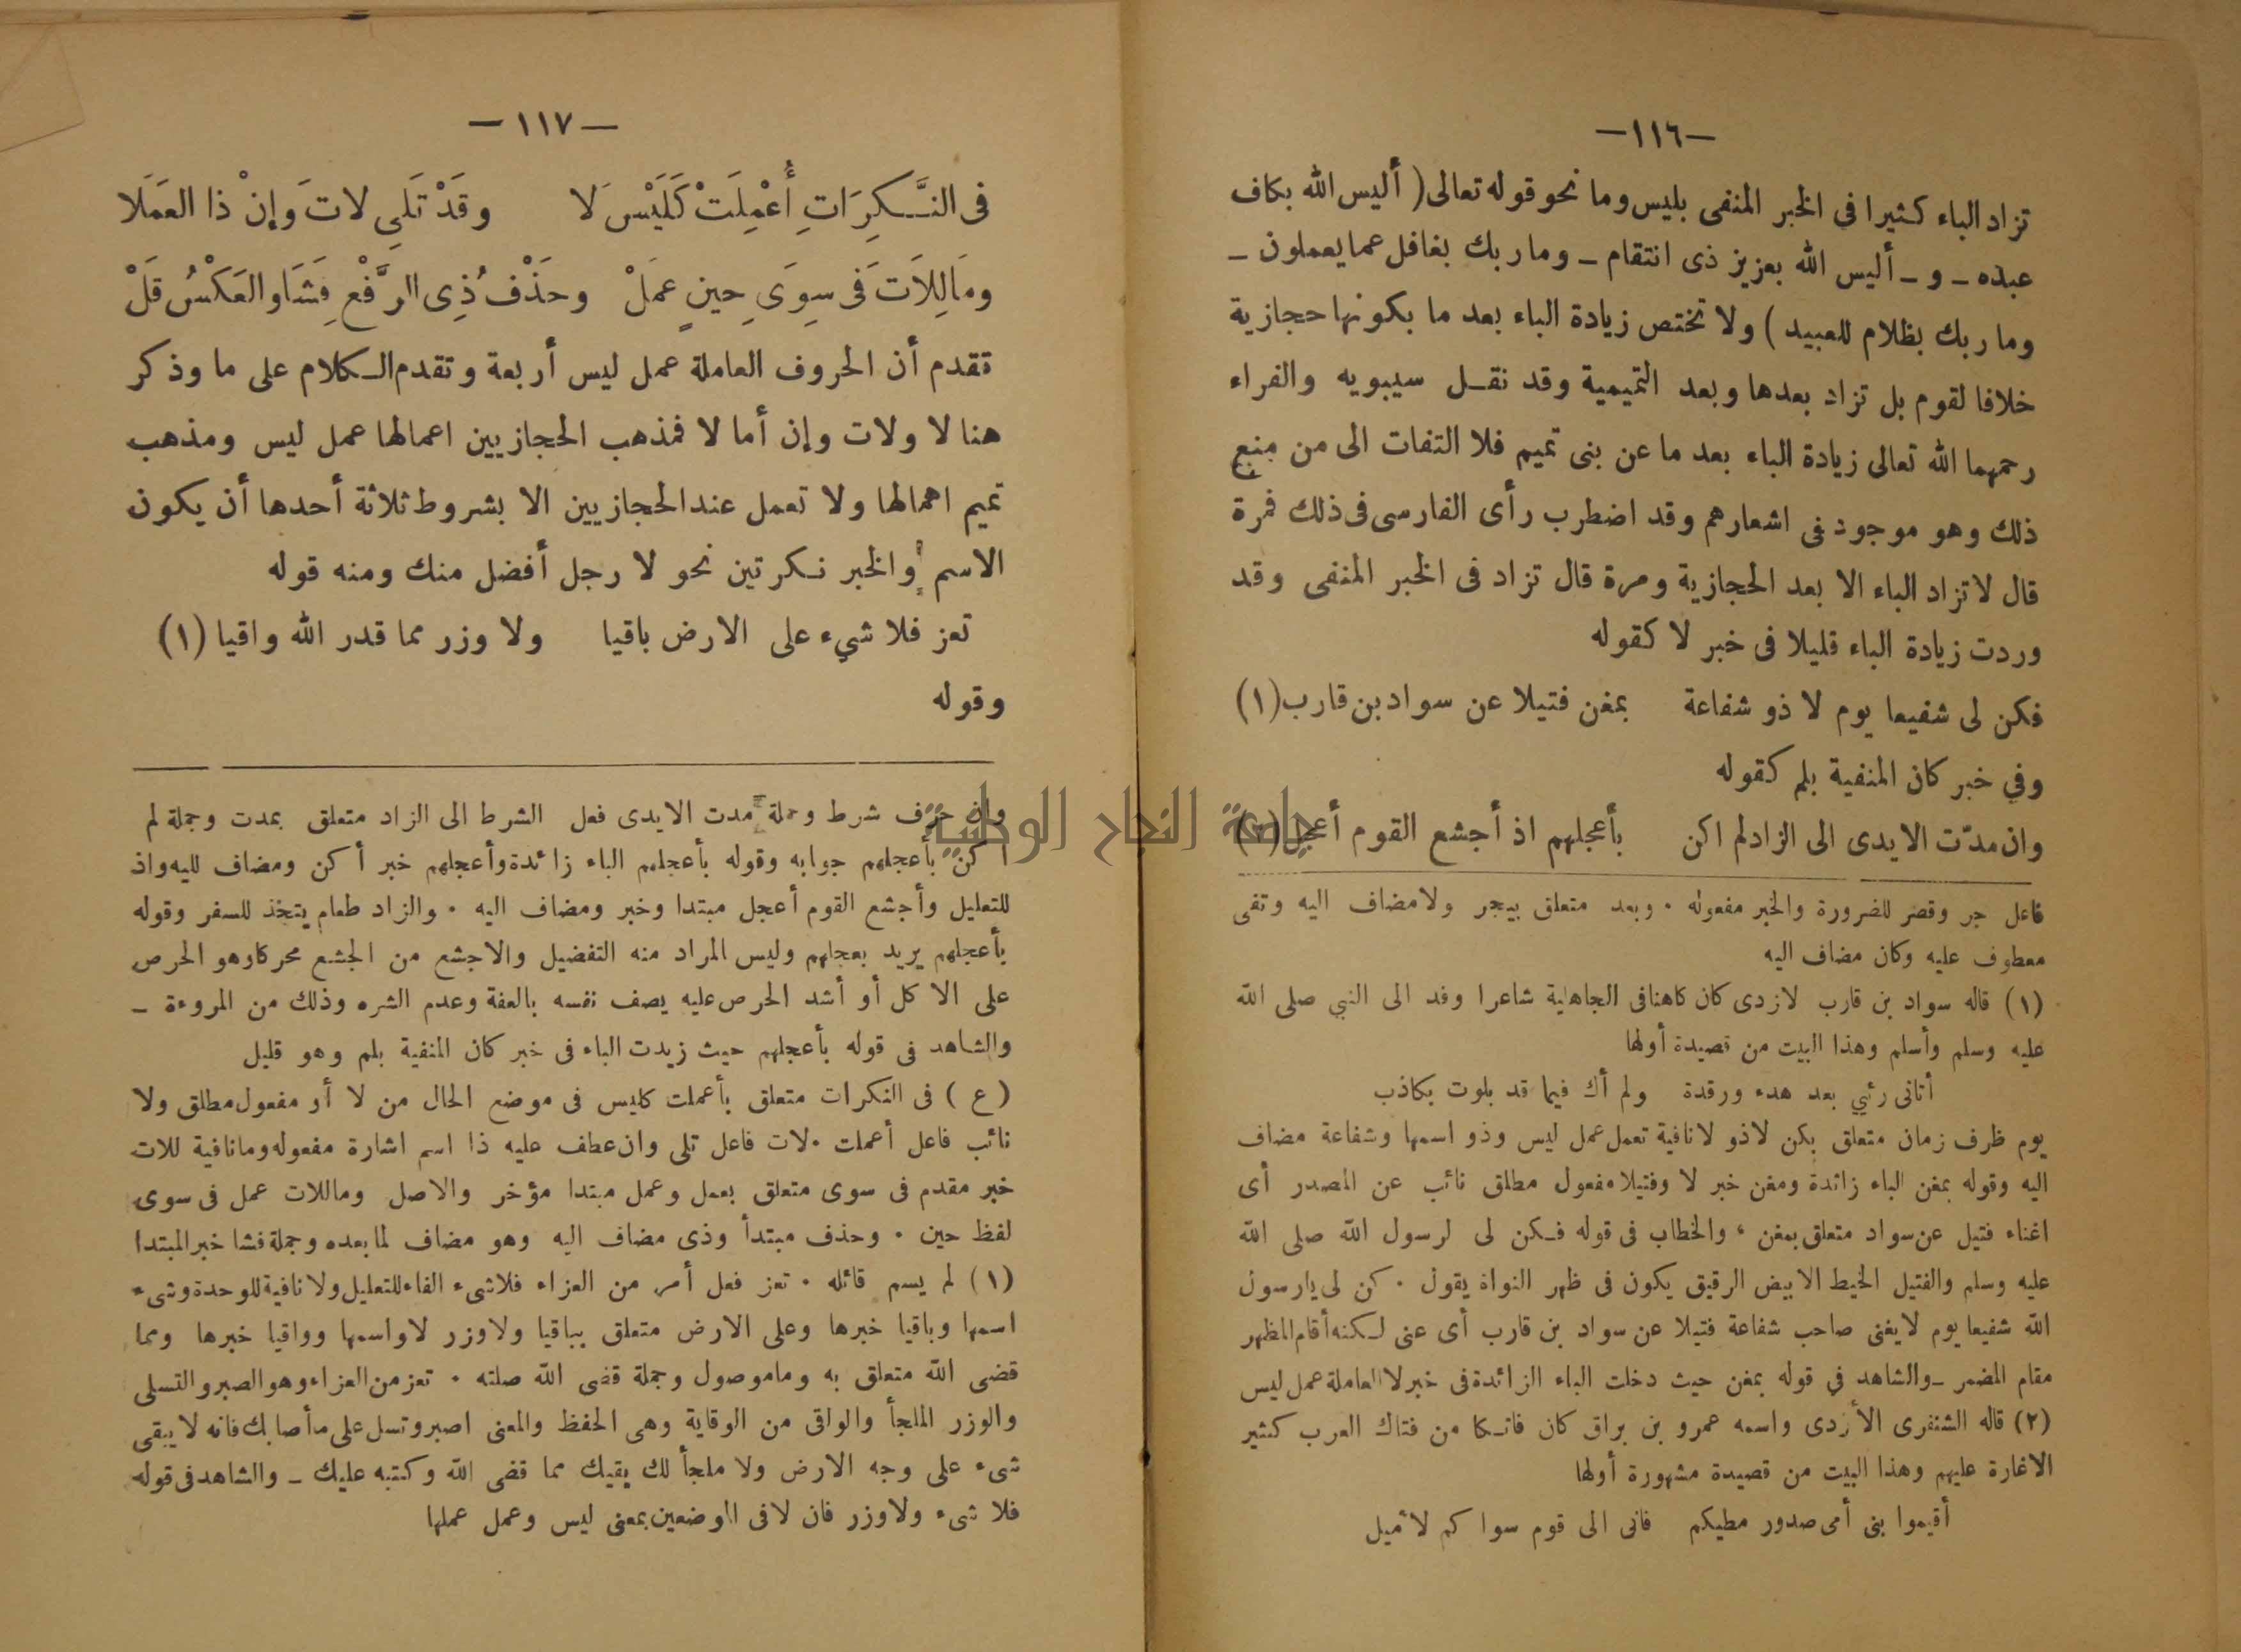 —١١٦—
تزاد الباء كثيرا في الخبر المنفى بليس وما نحو قوله تعالى ( أليس الله بكاف
عبده ـ و ـ أليس الله بعزيز ذى انتقام ـ وما ربك بغافل عما يعملون ـ
وما ربك بظلام للعبيد ) ولا تختص زيادة الباء بعد ما بكونها حجازية
خلافا لقوم بل تزاد بعدها وبعد التميمية وقد نقـل سيبويه والفراء
رحمهما الله تعالى زيادة الباء بعد ما عن بنى تميم فلا التفات الى من منع
ذلك وهو موجود فى اشعارهم وقد اضطرب رأى الفارسى فى ذلك فمرة
قال لا تزاد الباء الا بعد الحجازية ومرة قال تزاد فى الخبر المنفى وقد
وردت زيادة الباء قليلا فى خبر لا كقوله
فكن لى شفيعا يوم لا ذو شفاعة بمغن فتيلا عن سواد بن قارب (١)
وفي خبر كان المنفية بلم كقوله
وان مدّت الايدى الى الزاد لم اكن بأعجلهم اذ أجشع القوم أعجل (٢)
فاعل جر وقصر للضرورة والخبر مفعوله . وبعد متعلق بيجر ولا مضاف اليه وتفى
معطوف عليه وكان مضاف اليه
(١) قاله سواد بن قارب لازدى كان كاهنا فى الجاهلية شاعرا وفد الى النبي صلى الله
عليه وسلم وأسلم وهذا البيت من قصيدة أولها
أتانى رئي بعد هدء ورقدة ولم أك فيما قد بلوت بكاذب
يوم ظرف زمان متعلق بكن لا ذو لا نافية تعمل عمل ليس وذو اسمها وشفاعة مضاف
اليه وقوله بمغن الباء زائدة ومغن خبر لا وفتيلا مفعول مطلق نائب عن المصدر أى
اغناء فتيل عن سواد متعلق بمغن ، والخطاب فى قوله فـكن لى لرسول الله صلى الله
عليه وسلم والفتيل الخيط الابيض الرقيق يكون فى ظهر النواة يقول . كن لى يا رسول
الله شفيعا يوم لا يغنى صاحب شفاعة فتيلا عن سواد بن قارب أى عنى لـكنه أقام المظهر
مقام المضمر ـ والشاهد في قوله بمغن حيث دخلت الباء الزائدة فى خبر لا العاملة عمل ليس
(٢) قاله الشنفرى الأزدى واسمه عمرو بن براق كان فاتـكا من فتاك العرب كثير
الاغارة عليهم وهذا البيت من قصيدة مشهورة أولها
أقيموا بنى أمى صدور مطيكم فانى الى قوم سواكم لاميل
—١١٧—
فى النَّـكِرَاتِ أُعْمِلَتْ كَلَيْسَ لا وقَدْ تَلِى لاتَ وَإنْ ذا العَمَلَا
ومَا لِلَاتَ فَى سِوَى حِينٍ عَمَلْ وحَذْفُ ذِى الرَّفْعِ فَشَا والعَكْسُ قَلْ
تقدم أن الحروف العاملة عمل ليس أربعة وتقدم الـكلام على ما وذكر
هنا لا ولات وإن أما لا فمذهب الحجازيين اعمالها عمل ليس ومذهب
تميم اهمالها ولا تعمل عند الحجازيين الا بشروط ثلاثة أحدها أن يكون
الاسم والخبر نـكرتين نحو لا رجل أفضل منك ومنه قوله
تعز فلا شيء على الارض باقيا ولا وزر مما قدر الله واقيا (١)
وقوله
وان حرف شرط وجملة مدت الايدى فعل الشرط الى الزاد متعلق بمدت وجملة لم
أكن بأعجلهم جوابه وقوله بأعجلهم الباء زائدة وأعجلهم خبر أكن ومضاف لليه واذ
للتعليل وأجشع القوم أعجل مبتدا وخبر ومضاف اليه . والزاد طعام يتخذ للسفر وقوله
بأعجلهم يريد بعجلهم وليس المراد منه التفضيل والاجشع من الجشع محركا وهو الحرص
على الاكل أو أشد الحرص عليه يصف نفسه بالعفة وعدم الشره وذلك من المروءة ـ
والشاهد فى قوله بأعجلهم حيث زيدت الباء فى خبر كان المنفية بلم وهو قليل
(ع) فى النكرات متعلق بأعملت كليس فى موضع الحال من لا أو مفعول مطلق ولا
نائب فاعل أعملت . لات فاعل تلى وان عطف عليه ذا اسم اشارة مفعوله وما نافية للات
خبر مقدم فى سوى متعلق بعمل وعمل مبتدا مؤخر والاصل وما للات عمل فى سوى
لفظ حين . وحذف مبتدأ وذى مضاف اليه وهو مضاف لما بعده وجملة فشا خبر المبتدا
(١) لم يسم قائله . تعز فعل أمر من العزاء فلا شىء الفاء للتعليل ولا نافية للوحدة وشىء
اسمها وباقيا خبرها وعلى الارض متعلق بباقيا ولا وزر لا واسمها وواقيا خبرها ومما
قضى الله متعلق به وما موصول وجملة قضى الله صلته . تعز من العزاء وهو الصبر والتسلى
والوزر الملجأ والواقى من الوقاية وهى الحفظ والمعنى اصبر وتسل على ما أصابك فانه لا يبقى
شىء على وجه الارض ولا ملجأ لك يقيك مما قضى الله وكتبه عليك ـ والشاهد فى قوله
فلا شىء ولا وزر فان لا فى الموضعين بمعنى ليس وعمل عملها
جامعة النجاح الوطنية